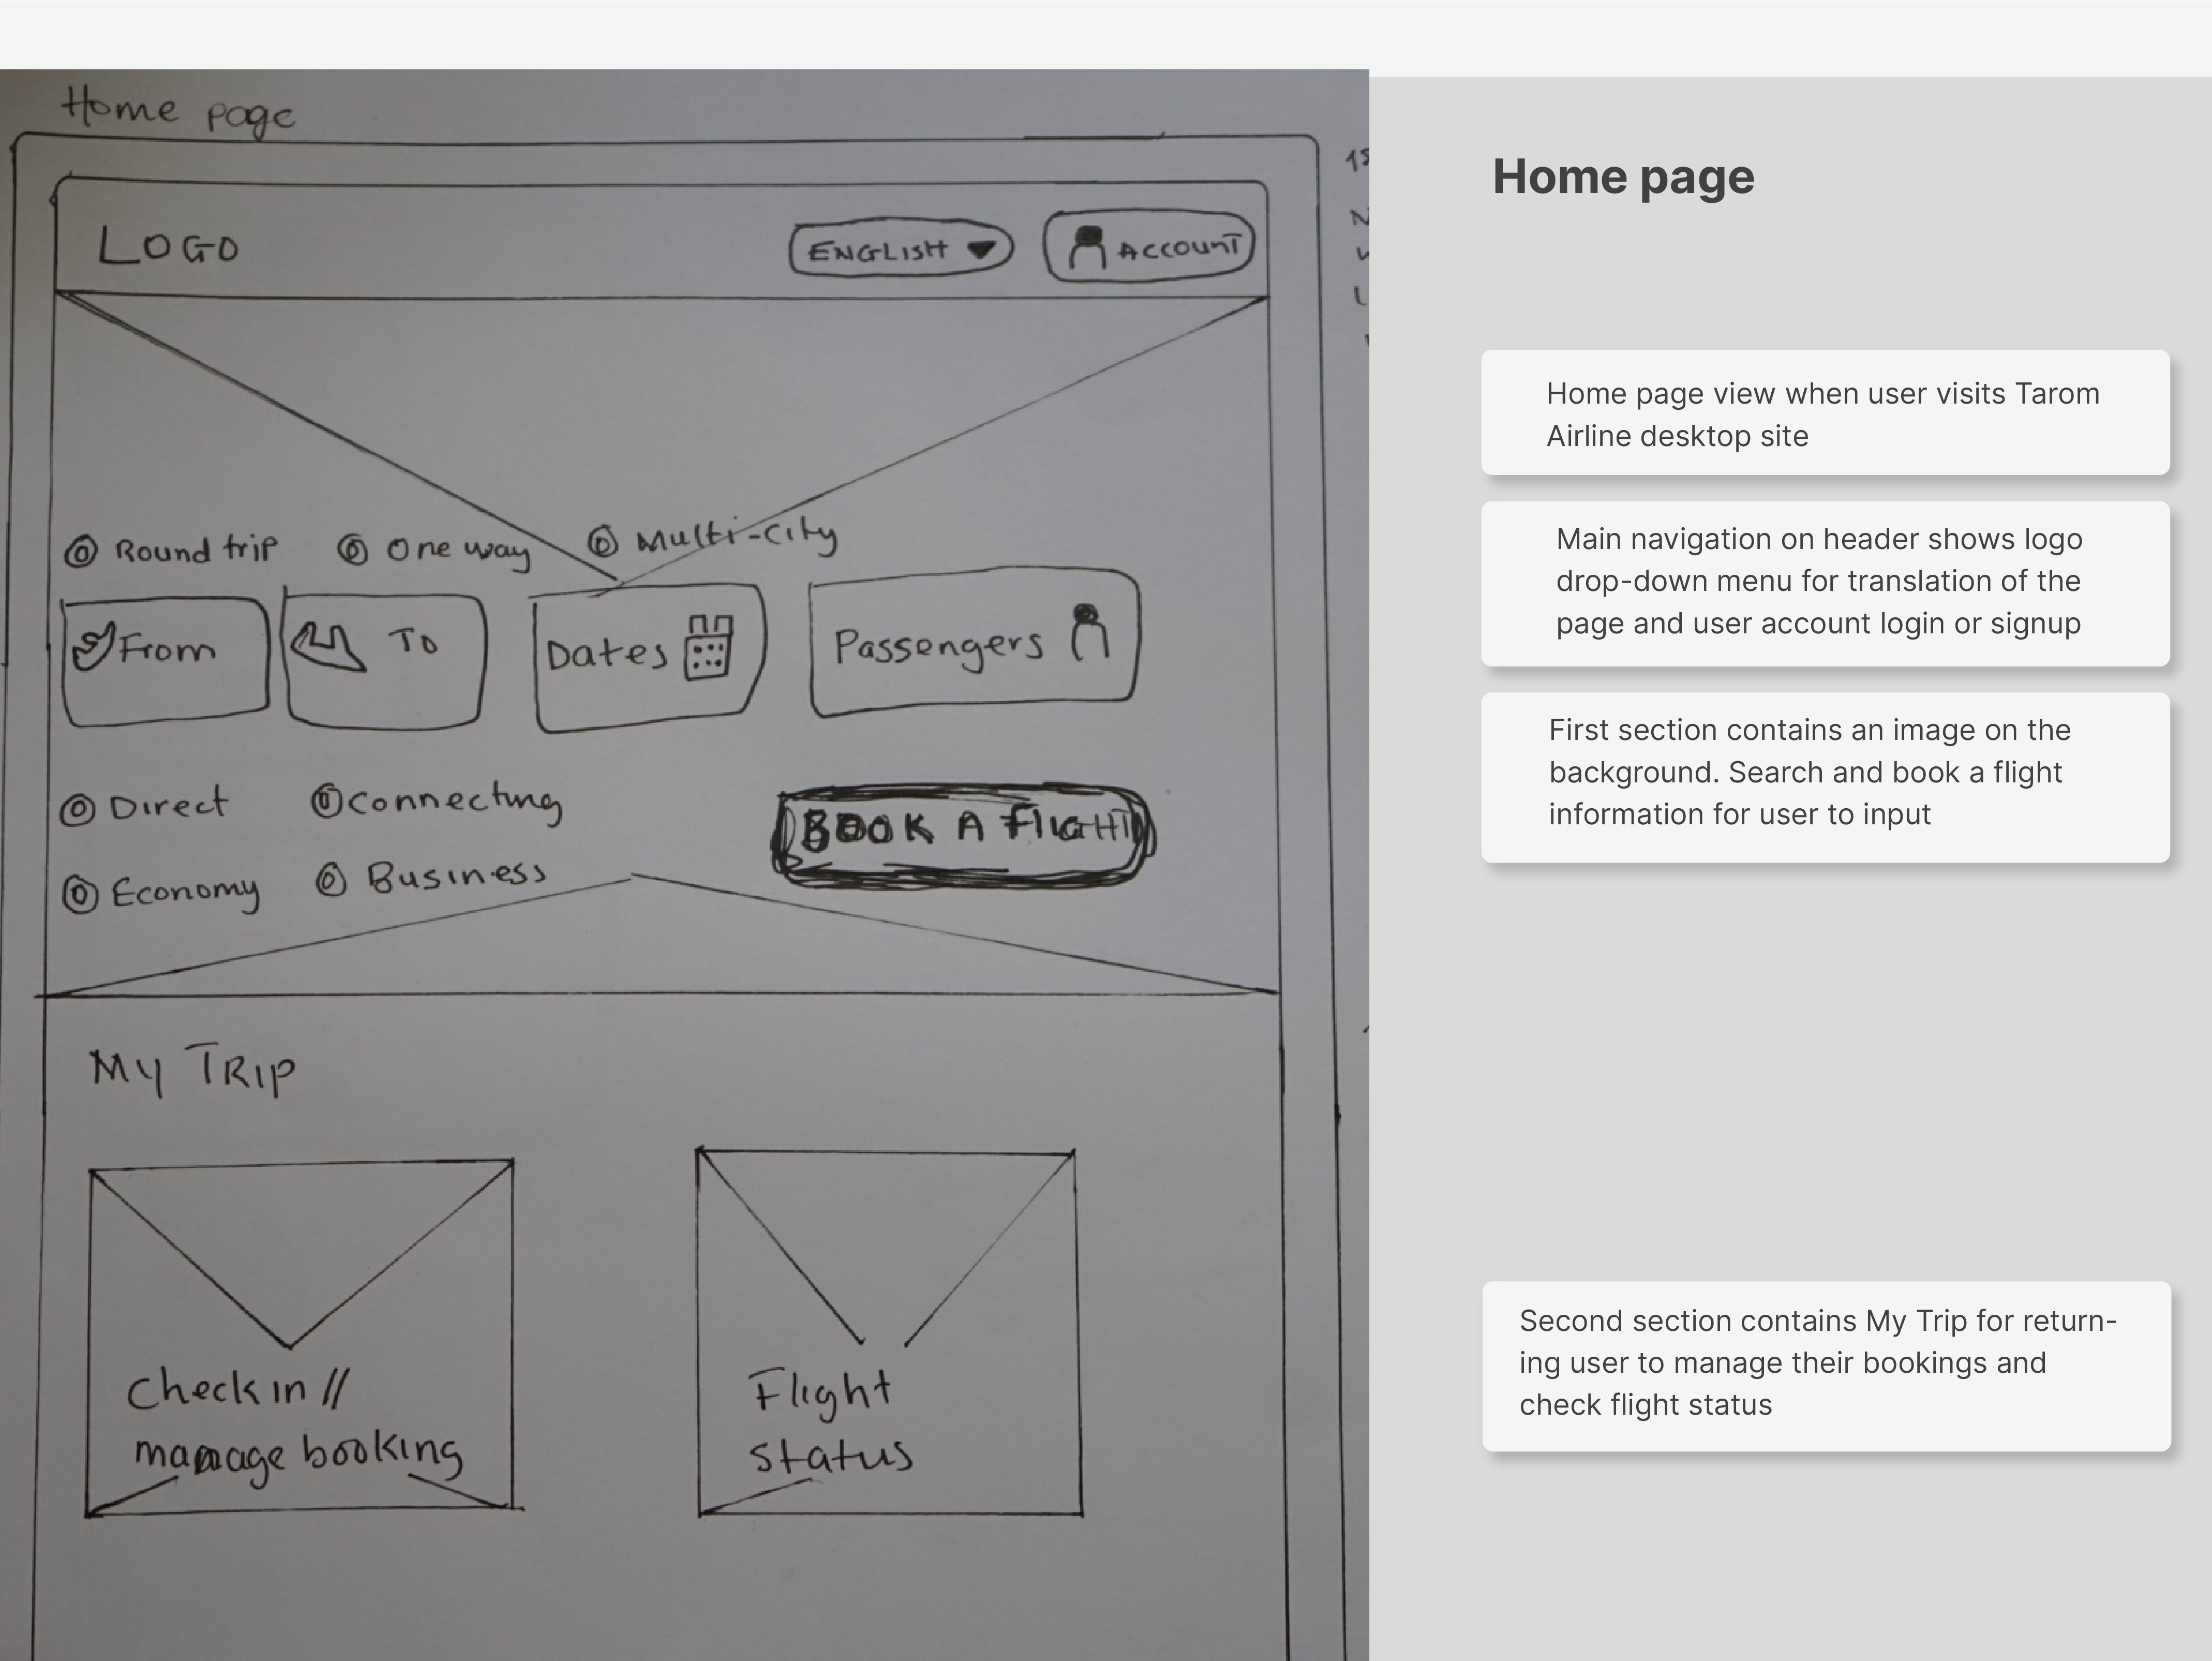 Home page
LOGO
ENGLISH
ACCOUNT
Round trip
One way
Multi-city
From
To
Dates
Passengers
Direct
Connecting
BOOK A FLIGHT
Economy
Business
MY TRIP
Check in //
manage booking
Flight
status
Home page
Home page view when user visits Tarom
Airline desktop site
Main navigation on header shows logo
drop-down menu for translation of the
page and user account login or signup
First section contains an image on the
background. Search and book a flight
information for user to input
Second section contains My Trip for return-
ing user to manage their bookings and
check flight status